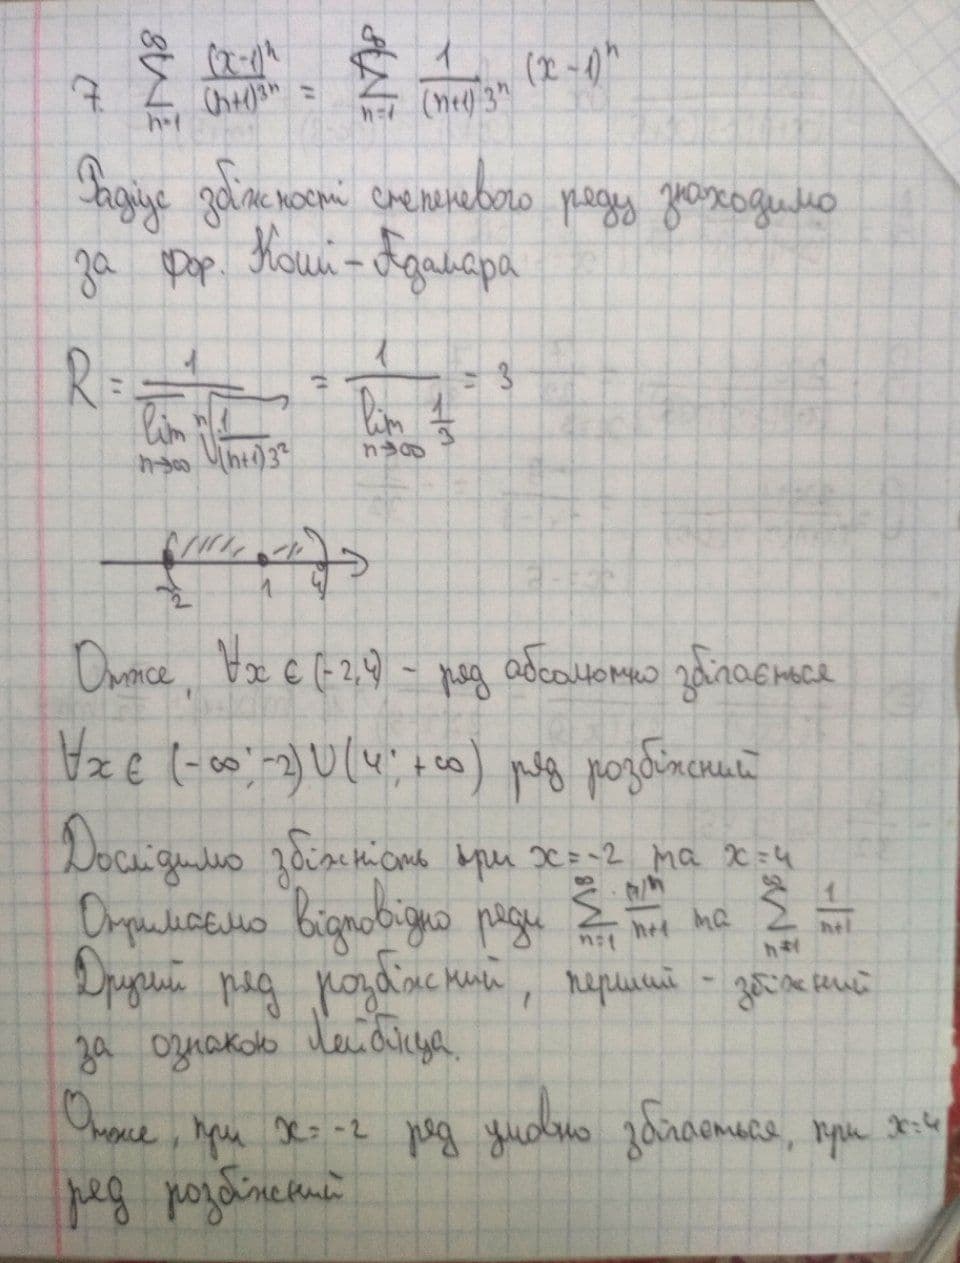 7. \sum_{n=1}^{\infty} \frac{(x-1)^n}{(n+1)3^n} = \sum_{n=1}^{\infty} \frac{1}{(n+1)3^n} (x-1)^n
Радіус збіжності степеневого ряду знаходимо
за фор. Коші-Адамара
R = \frac{1}{\overline{\lim}_{n→∞} \sqrt[n]{\frac{1}{(n+1)3^n}}} = \frac{1}{\lim_{n→∞} \frac{1}{3}} = 3
-2 1 4
Отже, ∀x ∈ (-2,4) - ряд абсолютно збігається
∀x ∈ (-∞;-2) ∪ (4;+∞) ряд розбіжний
Дослідимо збіжність при x=-2 та x=4
Отримаємо відповідно ряди \sum_{n=1}^{\infty} \frac{(-1)^n}{n+1} та \sum_{n=1}^{\infty} \frac{1}{n+1}
Другий ряд розбіжний, перший - збіжний
за ознакою Лейбніца.
Отже, при x=-2 ряд умовно збігається, при x=4
ряд розбіжний